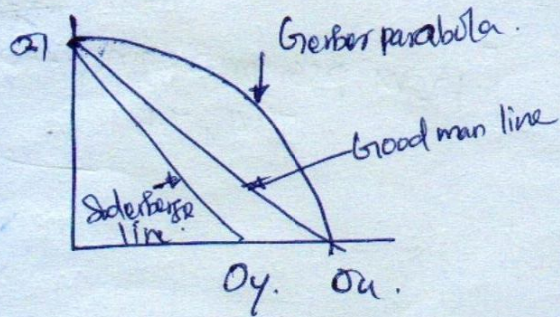 Gerber parabola.
σ1
Good man line
Soderberge
line.
σy.
σu.